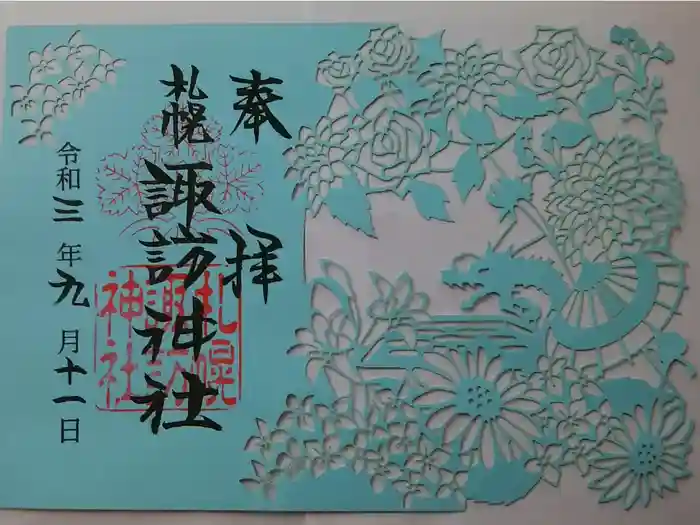 奉拝
札幌諏訪神社
令和三年九月十一日
札幌
諏訪
神社